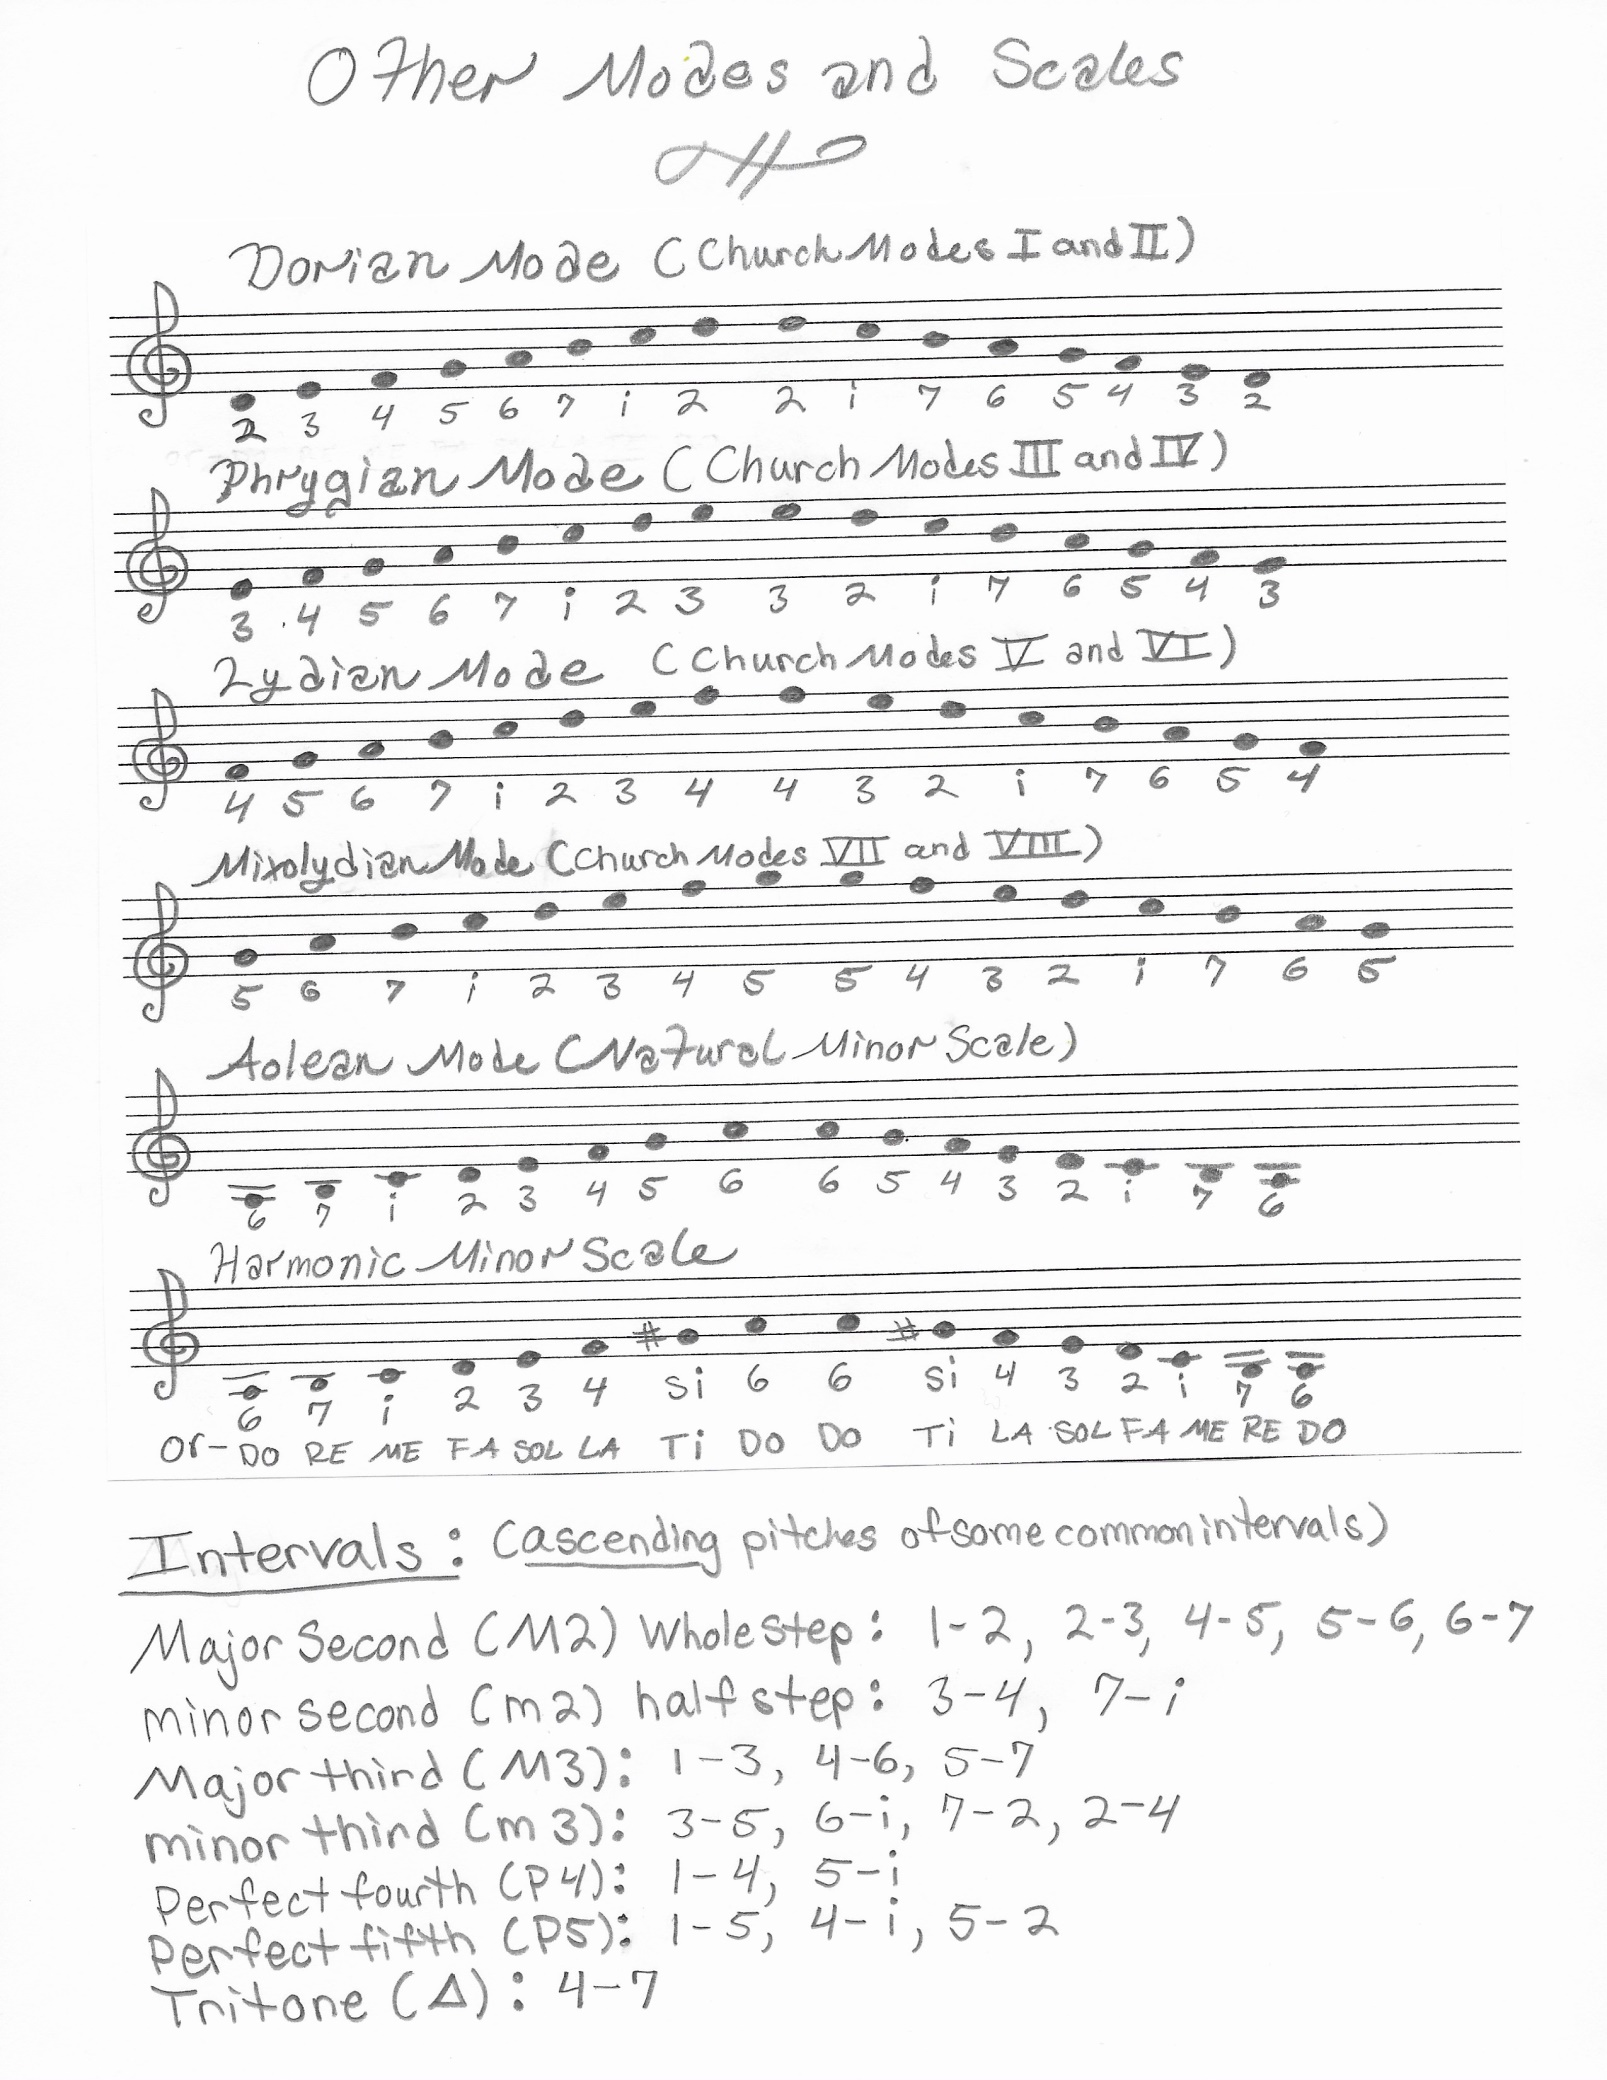 Other Modes and Scales
Dorian Mode (Church Modes I and II)
2 3 4 5 6 7 i 2 2 i 7 6 5 4 3 2
Phrygian Mode (Church Modes III and IV)
3 4 5 6 7 i 2 3 3 2 i 7 6 5 4 3
Lydian Mode (Church Modes V and VI)
4 5 6 7 i 2 3 4 4 3 2 i 7 6 5 4
Mixolydian Mode (Church Modes VII and VIII)
5 6 7 i 2 3 4 5 5 4 3 2 i 7 6 5
Aolean Mode (Natural Minor Scale)
6 7 i 2 3 4 5 6 6 5 4 3 2 i 7 6
Harmonic Minor Scale
# #
6 7 i 2 3 4 si 6 6 si 4 3 2 i 7 6
or- DO RE ME FA SOL LA Ti DO DO Ti LA SOL FA ME RE DO
Intervals: (ascending pitches of some common intervals)
Major Second (M2) Whole step: 1-2, 2-3, 4-5, 5-6, 6-7
minor second (m2) half step: 3-4, 7-i
Major third (M3): 1-3, 4-6, 5-7
minor third (m3): 3-5, 6-i, 7-2, 2-4
Perfect fourth (P4): 1-4, 5-i
Perfect fifth (P5): 1-5, 4-i, 5-2
Tritone (Δ): 4-7